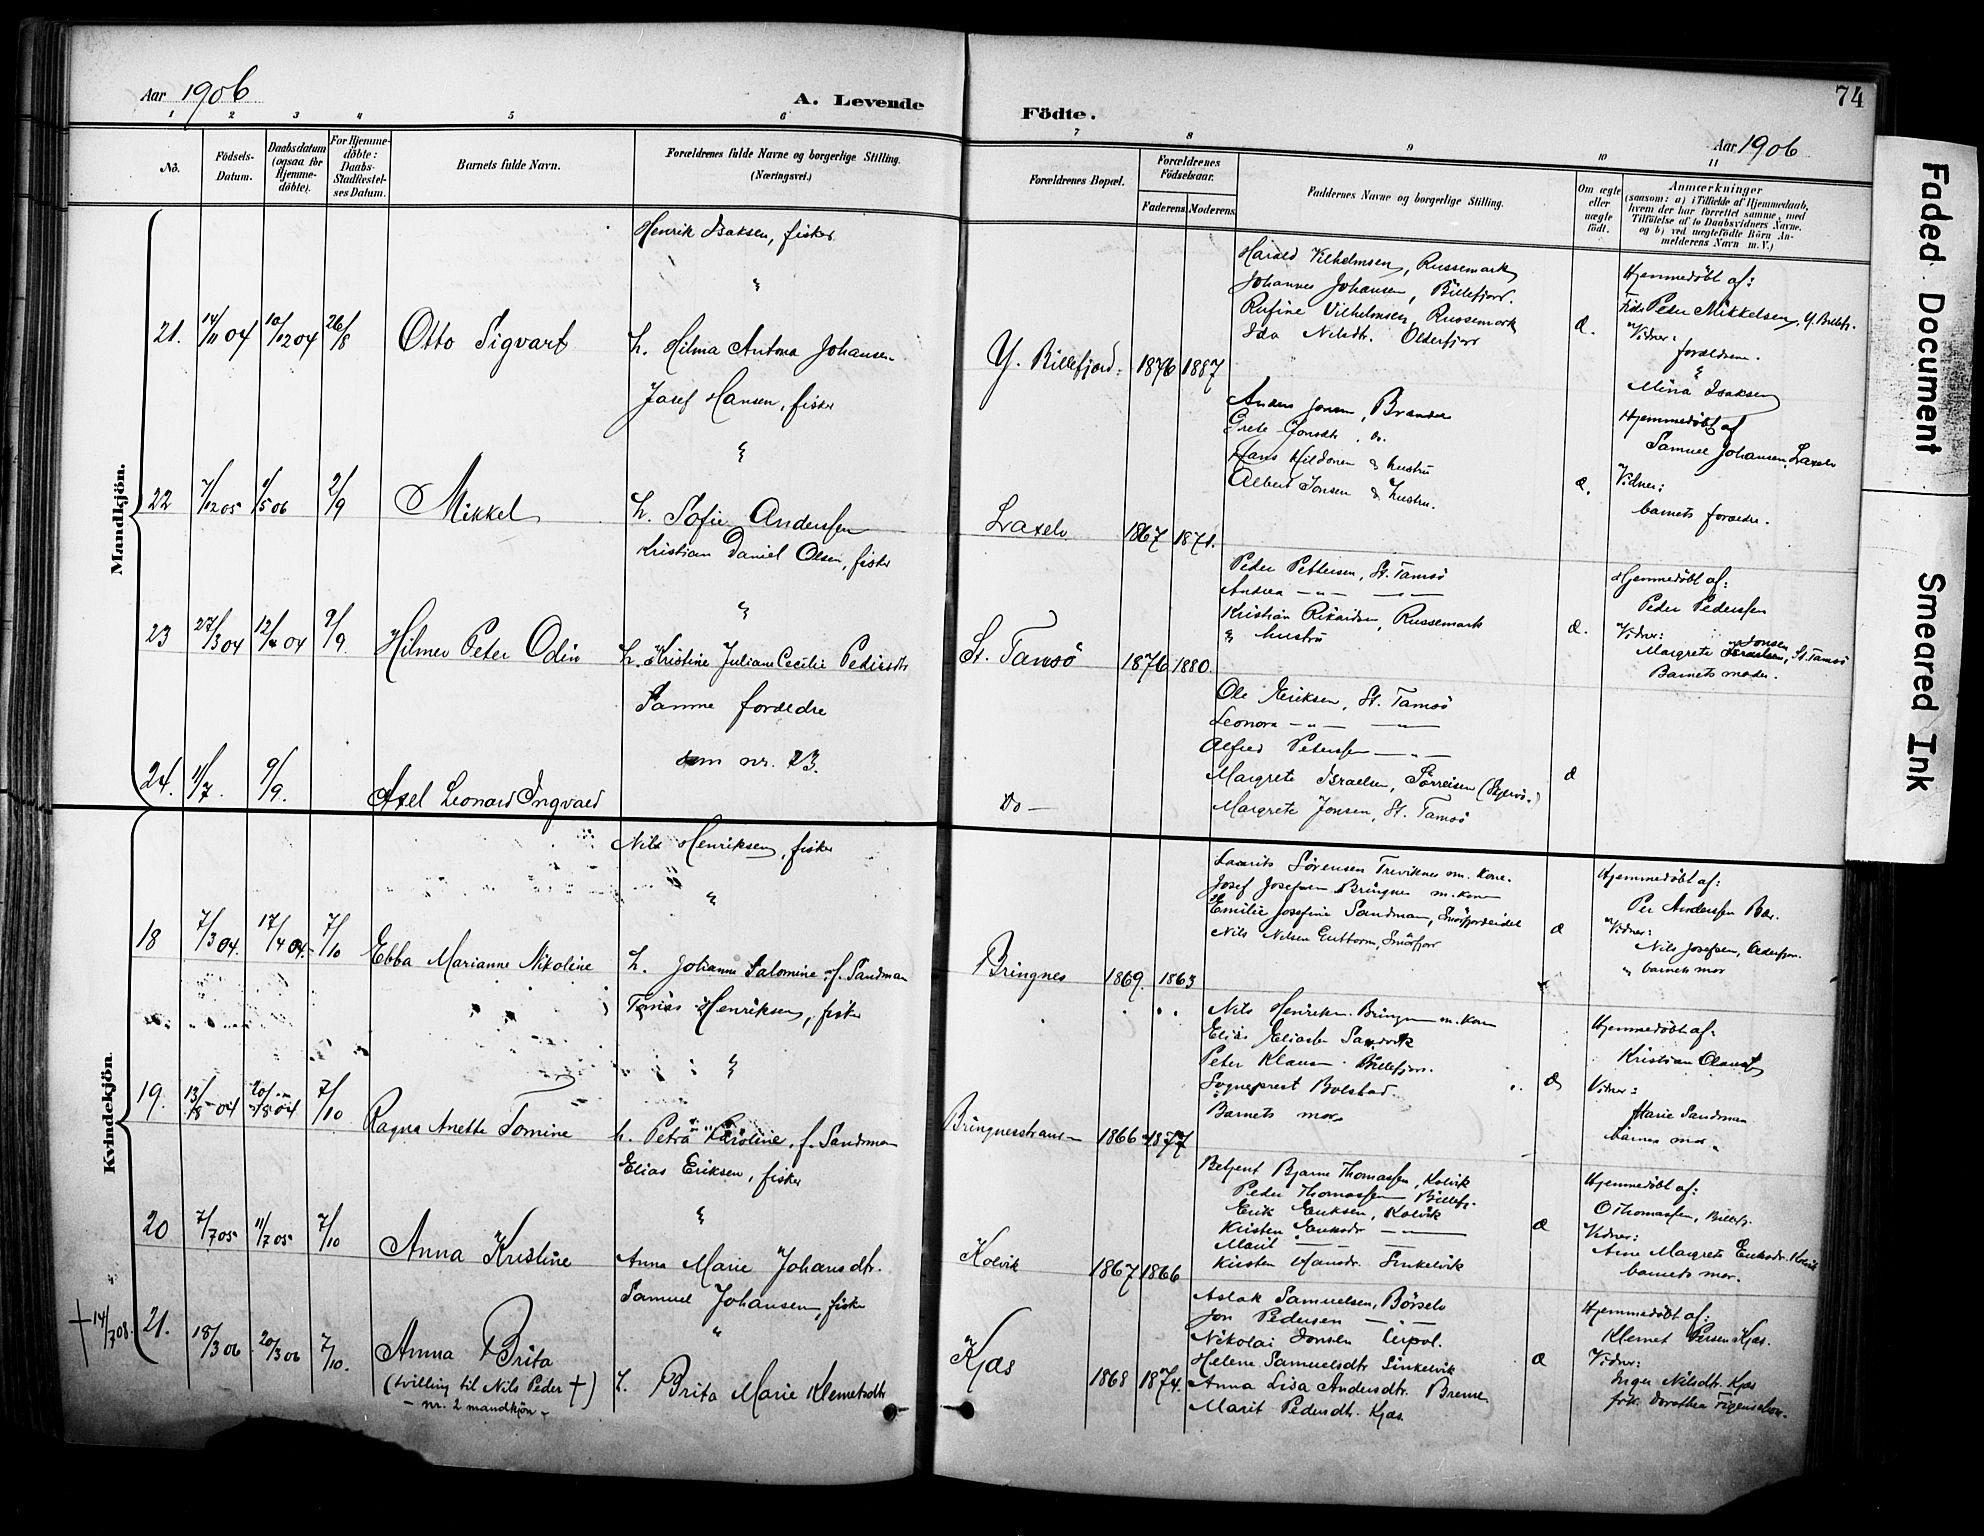 Aar 1906
A. Levende
Födte.
Aar 1906
74
1 2 3 4 5 6 7 8 9 10 11
No.
Födsels-
Datum.
Daabsdatum
(ogsaa for
Hjemme-
døbte).
For Hjemme-
døbte:
Daabs-
Stadfæstel-
ses Datum.
Barnets fulde Navn.
Forældrenes fulde Navne og borgerlige Stilling.
(Næringsvei.)
Forældrenes Bopæl.
Forældrenes
Födselsaar.
Faderens. Moderens.
Faddernes Navne og borgerlige Stilling.
Om ægte
eller
uægte
født.
Anmærkninger
(saasom: a) i Tilfælde af Hjemmedaab,
hvem der har forrettet samme, med
Tilføielse af to Daabsvidners Navne.
og b) ved uægtefødte Börn An-
melderens Navn m. V.)
Mandkjön.
Henrik Isaksen, fisker
&
21. 14/11 04 10/12 04 26/8 Otto Sigvart h. Hilma Antona Johansen
Y. Billefjord 1876 1887
Harald Vilhelmsen, Russemark
Johannes Johansen, Billefjord.
Rufine Vilhelmsen, Russemark
Ida Nilsdtr. Olderfjord
æ.
Hjemmedöbt af:
Peder Mikkelsen, Y. Billefj.
Vidner:
forældrene
&
Mina Isaksen
Josef Hansen, fisker
&
22 7/12 05 1/5 06 2/9 Mikkel h. Sofie Anderssen
Laxelv 1867 1871.
Anders Jonsen, Brænder
Grete Jonsdtr. do.
Hans Hildonen & hustru
Albert Jonsen & hustru.
æ.
Hjemmedöbt af
Samuel Johansen, Laxelv
Vidner:
barnets forældre.
Kristian Daniel Olsen, fisker
&
23 27/3 04 12/4 04 2/9. Hilmer Peter Odin h. Kristine Juliane Cecilie Pedersdtr
St. Tamsö 1876 1880.
Peder Pettersen, St. Tamsö
Andrea — " — — " —
Kristian Rikardsen, Russemark
& hustru
æ.
Hjemmedöbt af:
Peder Pederssen
Vidner:
Margrete Jonsen, St. Tamsö
Barnets moder.
Samme forældre
som nr. 23.
24. 11/7. 9/9. Axel Leonard Ingvald
Do —
Ole Eriksen, St. Tamsö
Leonora — " — — " —
Alfred Peterssen — " —
Margrete Israelsen, Sörreisen (Skjervö.)
Margrete Jonsen, St. Tamsö
æ
Kvindekjön
Nils Henriksen, fisker
&
18 7/3 04. 17/4 04. 7/10 Ebba Marianne Nikoline h. Johanne Salomine, f. Sandman
Bringnes 1869. 1863
Laurits Sörensen Treviknes m. Kone.
Josef Josefsen Bringnes m. Kone
Emilie Josefine Sandman, Smörfjordeidet
Nils Nilsen Guttorm, Smörfjord
æ
Hjemmedöbt af:
Per Anderssen Bær.
Vidner:
Nils Josefsen, Olderfjor.
& barnets mor
Tomas Henriksen, fisker
&
19. 13/5 04 20/5 04 7/10 Ragna Anette Tomine h. Petra Karoline, f. Sandman
Bringnesstrand 1866 1877
Nils Henriksen Bringnes m. Kone
Elias Eliassen Sandvik
Peter Klausen Billefjor.
Sogneprest Bolstad.
Barnets mor
æ
Hjemmedöbt af:
Kristian Olaussen
Vidner:
Marie Sandman
barnets mor
Elias Eriksen, fisker
&
20 7/7 05 11/7 05 7/10 Anna Kristine Anna Marie Johansdtr.
Kolvik 1867 1866
Betjent Bjarne Thomassen, Kolvik
Peder Thomassen Billefj.
Erik Eriksen, Kolvik
Kristen Eriksdtr — " —
Marit — " —
Kirsten Hansdr. Sinkelvik
æ
Hjemmedöbt af:
O Thomassen, Billefj.
Vidner:
Ane Margrete Eriksdr. Kolvik
barnets mor.
Samuel Johansen, fisker
&
† 14/7 08. 21. 18/3 06 20/3 06 7/10. Anna Brita h. Brita Marie Klemetsdtr
(tvilling til Nils Peder †)
- nr. 2 mandkjön -
Kjæs 1868 1874.
Aslak Samuelsen, Börselv
Jon Pedersen — " —
Nikolai Jonsen Leirpol.
Helene Samuelsdtr Sinkelvik
Anna Lisa Andersdtr. Brenne
Marit Pedersdtr. Kjæs
æ
Hjemmedöbt af:
Klemet Persen Kjæs.
Vidner:
Inger Nilsdtr. Kjæs
frk. Dorothea Figenschou.
Faded Document
Smeared Ink